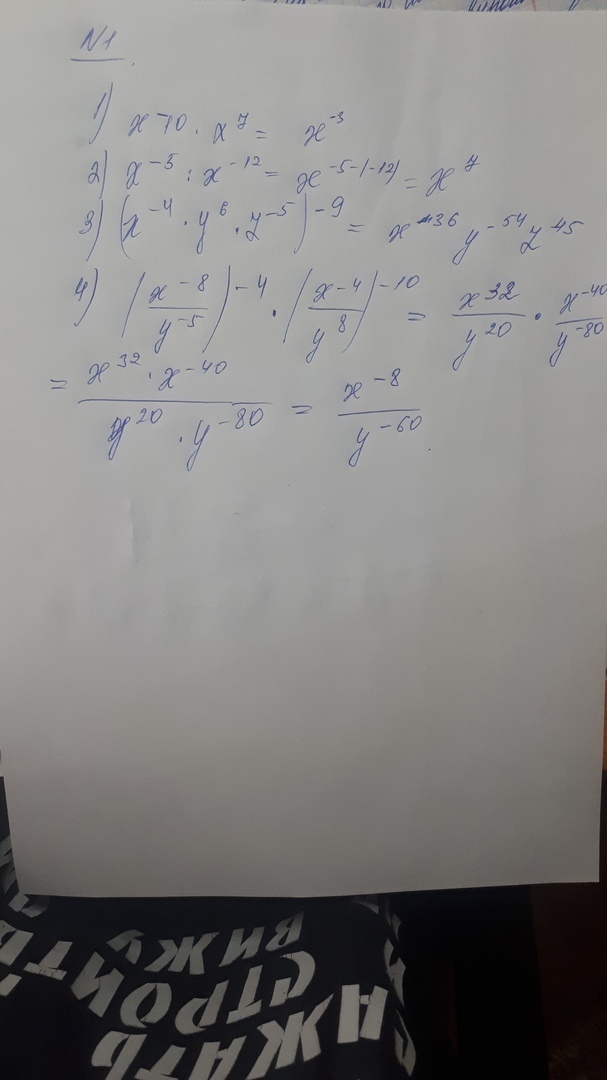 N1
1) x⁻¹⁰ · x⁷ = x⁻³
2) x⁻⁵ : x⁻¹² = x⁻⁵⁻⁽⁻¹²⁾ = x⁷
3) (x⁻⁴ · y⁶ · z⁻⁵)⁻⁹ = x³⁶ y⁻⁵⁴ z⁴⁵
4) (x⁻⁸/y⁻⁵)⁻⁴ · (x⁻⁴/y⁸)⁻¹⁰ = x³²/y²⁰ · x⁻⁴⁰/y⁻⁸⁰
= x³² · x⁻⁴⁰/y²⁰ · y⁻⁸⁰ = x⁻⁸/y⁻⁶⁰.
ВИЖУ
СТРОИТЬ